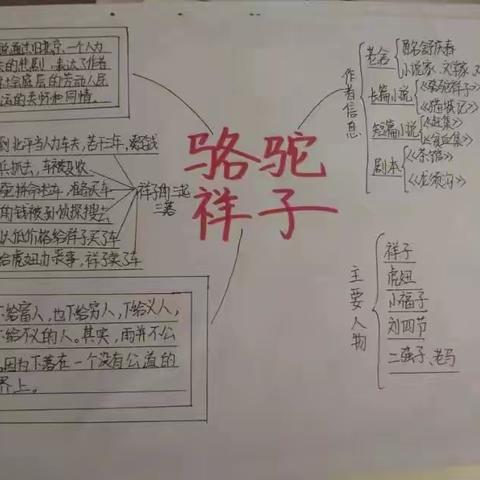 说通过旧北京一个人力
的悲剧,表达了作者
社会底层的劳动人民
运的关怀和同情。
到北平当人力车夫,苦干三年,
兵抓去,车被
拼命拉车,准备买车
的钱被孙侦探搜去
以低价格给祥子买了车
给虎妞办丧事,祥子卖了车
祥子的三起
三落
下给富人,也下给穷人,下给义人,
下给不义的人。其实,雨并不公
因为下落在一个没有公道的
界上。
骆驼
祥子
作者信息
老舍
原名舒庆春
小说家、文学家
长篇小说
《骆驼祥子》
《猫城记》
短篇小说
《赶集》
剧本
《茶馆》
《龙须沟》
主要人物
祥子
虎妞
小福子
刘四爷
二强子、老马